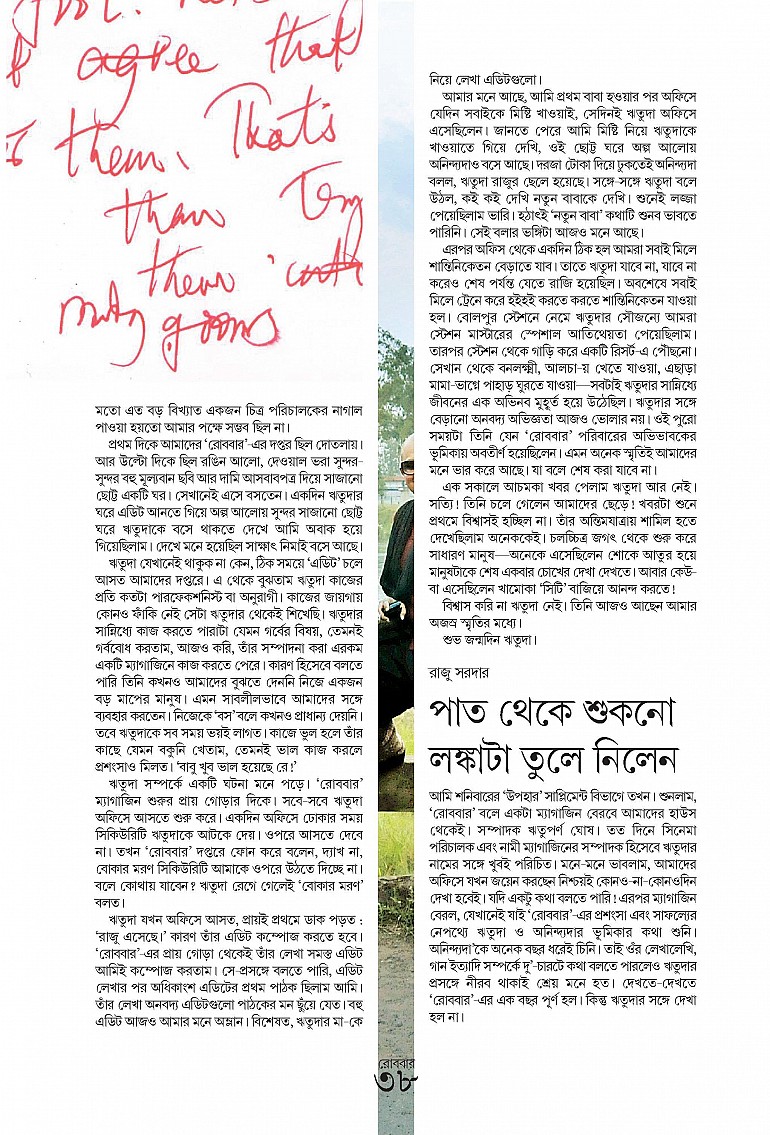 agree that
them. That's
than
them
মতো এত বড় বিখ্যাত একজন চিত্র পরিচালকের নাগাল
পাওয়া হয়তো আমার পক্ষে সম্ভব ছিল না।
প্রথম দিকে আমাদের ‘রোববার’-এর দপ্তর ছিল দোতলায়।
আর উল্টো দিকে ছিল রঙিন আলো, দেওয়াল ভরা সুন্দর-
সুন্দর বহু মূল্যবান ছবি আর দামি আসবাবপত্র দিয়ে সাজানো
ছোট্ট একটি ঘর। সেখানেই এসে বসতেন। একদিন ঋতুদার
ঘরে এডিট আনতে গিয়ে অল্প আলোয় সুন্দর সাজানো ছোট্ট
ঘরে ঋতুদাকে বসে থাকতে দেখে আমি অবাক হয়ে
গিয়েছিলাম। দেখে মনে হয়েছিল সাক্ষাৎ নিমাই বসে আছে।
ঋতুদা যেখানেই থাকুক না কেন, ঠিক সময়ে ‘এডিট’ চলে
আসত আমাদের দপ্তরে। এ থেকে বুঝতাম ঋতুদা কাজের
প্রতি কতটা পারফেকশনিস্ট বা অনুরাগী। কাজের জায়গায়
কোনও ফাঁকি নেই সেটা ঋতুদার থেকেই শিখেছি। ঋতুদার
সান্নিধ্যে কাজ করতে পারাটা যেমন গর্বের বিষয়, তেমনই
গর্ববোধ করতাম, আজও করি, তাঁর সম্পাদনা করা এরকম
একটি ম্যাগাজিনে কাজ করতে পেরে। কারণ হিসেবে বলতে
পারি তিনি কখনও আমাদের বুঝতে দেননি নিজে একজন
বড় মাপের মানুষ। এমন সাবলীলভাবে আমাদের সঙ্গে
ব্যবহার করতেন। নিজেকে ‘বস’ বলে কখনও প্রাধান্য দেয়নি।
তবে ঋতুদাকে সব সময় ভয়ই লাগত। কাজে ভুল হলে তাঁর
কাছে যেমন বকুনি খেতাম, তেমনই ভাল কাজ করলে
প্রশংসাও মিলত। ‘বাবু খুব ভাল হয়েছে রে!’
ঋতুদা সম্পর্কে একটি ঘটনা মনে পড়ে। ‘রোববার’
ম্যাগাজিন শুরুর প্রায় গোড়ার দিকে। সবে-সবে ঋতুদা
অফিসে আসতে শুরু করে। একদিন অফিসে ঢোকার সময়
সিকিউরিটি ঋতুদাকে আটকে দেয়। ওপরে আসতে দেবে
না। তখন ‘রোববার’ দপ্তরে ফোন করে বলেন, দ্যাখ না,
বোকার মরণ সিকিউরিটি আমাকে ওপরে উঠতে দিচ্ছে না।
বলে কোথায় যাবেন? ঋতুদা রেগে গেলেই ‘বোকার মরণ’
বলত।
ঋতুদা যখন অফিসে আসত, প্রায়ই প্রথমে ডাক পড়ত :
‘রাজু এসেছে।’ কারণ তাঁর এডিট কম্পোজ করতে হবে।
‘রোববার’-এর প্রায় গোড়া থেকেই তাঁর লেখা সমস্ত এডিট
আমিই কম্পোজ করতাম। সে-প্রসঙ্গে বলতে পারি, এডিট
লেখার পর অধিকাংশ এডিটের প্রথম পাঠক ছিলাম আমি।
তাঁর লেখা অনবদ্য এডিটগুলো পাঠকের মন ছুঁয়ে যেত। বহু
এডিট আজও আমার মনে অম্লান। বিশেষত, ঋতুদার মা-কে
নিয়ে লেখা এডিটগুলো।
আমার মনে আছে, আমি প্রথম বাবা হওয়ার পর অফিসে
যেদিন সবাইকে মিষ্টি খাওয়াই, সেদিনই ঋতুদা অফিসে
এসেছিলেন। জানতে পেরে আমি মিষ্টি নিয়ে ঋতুদাকে
খাওয়াতে গিয়ে দেখি, ওই ছোট্ট ঘরে অল্প আলোয়
অনিন্দ্যদাও বসে আছে। দরজা টোকা দিয়ে ঢুকতেই অনিন্দ্যদা
বলল, ঋতুদা রাজুর ছেলে হয়েছে। সঙ্গে-সঙ্গে ঋতুদা বলে
উঠল, কই কই দেখি নতুন বাবাকে দেখি। শুনেই লজ্জা
পেয়েছিলাম ভারি। হঠাৎই ‘নতুন বাবা’ কথাটি শুনব ভাবতে
পারিনি। সেই বলার ভঙ্গিটা আজও মনে আছে।
এরপর অফিস থেকে একদিন ঠিক হল আমরা সবাই মিলে
শান্তিনিকেতন বেড়াতে যাব। তাতে ঋতুদা যাবে না, যাবে না
করেও শেষ পর্যন্ত যেতে রাজি হয়েছিল। অবশেষে সবাই
মিলে ট্রেনে করে হইহই করতে করতে শান্তিনিকেতন যাওয়া
হল। বোলপুর স্টেশনে নেমে ঋতুদার সৌজন্যে আমরা
স্টেশন মাস্টারের স্পেশাল আতিথেয়তা পেয়েছিলাম।
তারপর স্টেশন থেকে গাড়ি করে একটি রিসর্ট-এ পৌঁছনো।
সেখান থেকে বনলক্ষ্মী, আলচা-য় খেতে যাওয়া, এছাড়া
মামা-ভাগ্নে পাহাড় ঘুরতে যাওয়া—সবটাই ঋতুদার সান্নিধ্যে
জীবনের এক অভিনব মুহূর্ত হয়ে উঠেছিল। ঋতুদার সঙ্গে
বেড়ানো অনবদ্য অভিজ্ঞতা আজও ভোলার নয়। ওই পুরো
সময়টা তিনি যেন ‘রোববার’ পরিবারের অভিভাবকের
ভূমিকায় অবতীর্ণ হয়েছিলেন। এমন অনেক স্মৃতিই আমাদের
মনে ভার করে আছে। যা বলে শেষ করা যাবে না।
এক সকালে আচমকা খবর পেলাম ঋতুদা আর নেই।
সত্যি! তিনি চলে গেলেন আমাদের ছেড়ে! খবরটা শুনে
প্রথমে বিশ্বাসই হচ্ছিল না। তাঁর অন্তিমযাত্রায় শামিল হতে
দেখেছিলাম অনেককেই। চলচ্চিত্র জগৎ থেকে শুরু করে
সাধারণ মানুষ—অনেকে এসেছিলেন শোকে আতুর হয়ে
মানুষটাকে শেষ একবার চোখের দেখা দেখতে। আবার কেউ-
বা এসেছিলেন খামোকা ‘সিটি’ বাজিয়ে আনন্দ করতে!
বিশ্বাস করি না ঋতুদা নেই। তিনি আজও আছেন আমার
অজস্র স্মৃতির মধ্যে।
শুভ জন্মদিন ঋতুদা।
রাজু সরদার
পাত থেকে শুকনো
লঙ্কাটা তুলে নিলেন
আমি শনিবারের ‘উপহার’ সাপ্লিমেন্ট বিভাগে তখন। শুনলাম,
‘রোববার’ বলে একটা ম্যাগাজিন বেরবে আমাদের হাউস
থেকেই। সম্পাদক ঋতুপর্ণ ঘোষ। তত দিনে সিনেমা
পরিচালক এবং নামী ম্যাগাজিনের সম্পাদক হিসেবে ঋতুদার
নামের সঙ্গে খুবই পরিচিত। মনে-মনে ভাবলাম, আমাদের
অফিসে যখন জয়েন করছেন নিশ্চয়ই কোনও-না-কোনওদিন
দেখা হবেই। যদি একটু কথা বলতে পারি! এরপর ম্যাগাজিন
বেরল, যেখানেই যাই ‘রোববার’-এর প্রশংসা এবং সাফল্যের
নেপথ্যে ঋতুদা ও অনিন্দ্যদার ভূমিকার কথা শুনি।
অনিন্দ্যদা’কে অনেক বছর ধরেই চিনি। তাই ওঁর লেখালেখি,
গান ইত্যাদি সম্পর্কে দু’-চারটে কথা বলতে পারলেও ঋতুদার
প্রসঙ্গে নীরব থাকাই শ্রেয় মনে হত। দেখতে-দেখতে
‘রোববার’-এর এক বছর পূর্ণ হল। কিন্তু ঋতুদার সঙ্গে দেখা
হল না।
রোববার
৩৮